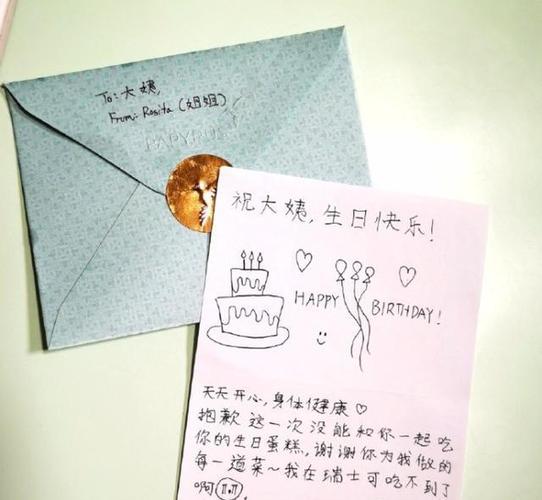 To: 大姨,
From: Rosita (姐姐)
PAPYRUS
祝大姨,生日快乐!
HAPPY BIRTHDAY!
天天开心,身体健康♡
抱歉这一次没能和你一起吃
你的生日蛋糕,谢谢你为我做的
每一道菜~我在瑞士可吃不到了
啊